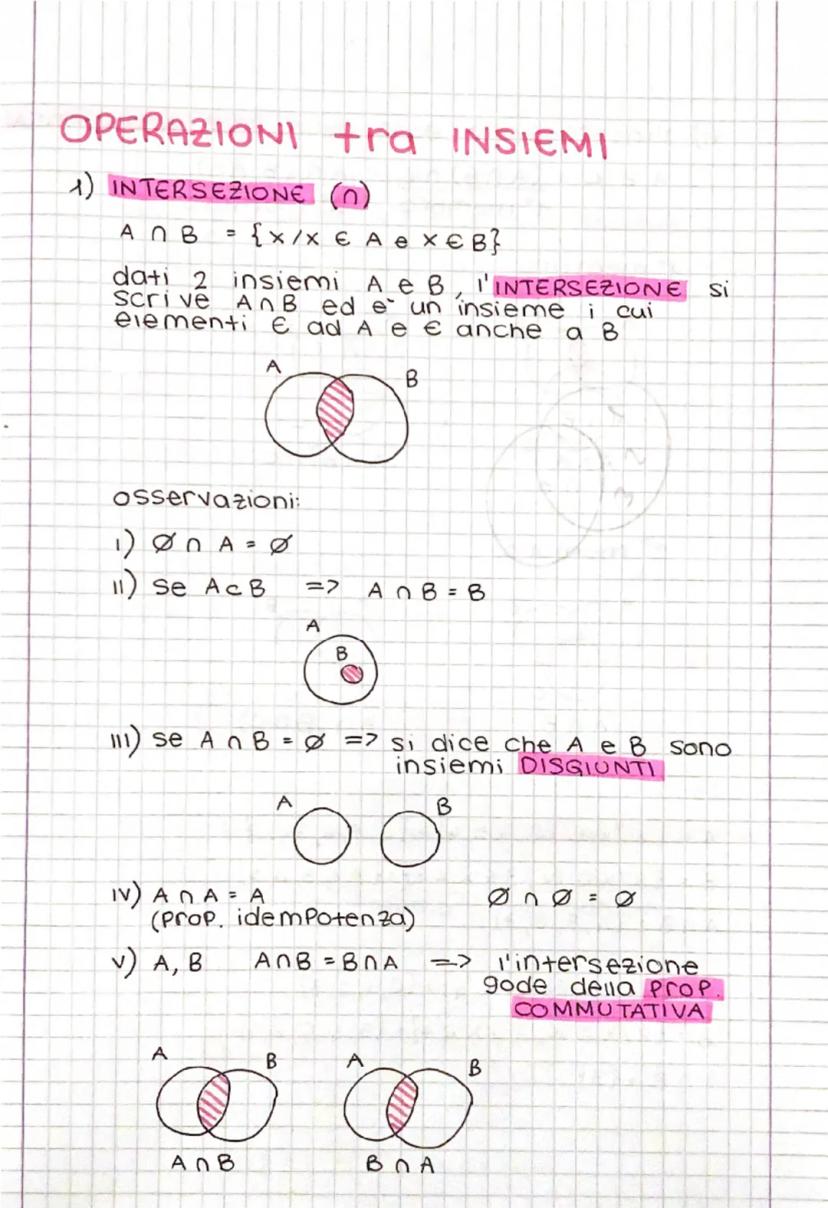 OPERAZIONI tra INSIEMI
1) INTERSEZIONE (∩)
A ∩ B = {x/x ∈ A e x ∈ B}
dati 2 insiemi A e B, l'INTERSEZIONE si
scrive A∩B ed e` un insieme i cui
elementi ∈ ad A e ∈ anche a B
A B
osservazioni:
I) Ø ∩ A = Ø
II) se A⊂B => A ∩ B = B
A
B
III) se A ∩ B = Ø => si dice che A e B sono
insiemi DISGIUNTI
A B
IV) A ∩ A = A Ø ∩ Ø = Ø
(prop. idempotenza)
V) A, B A∩B = B∩A => l'intersezione
gode della PROP.
COMMUTATIVA
A B A B
A ∩ B B ∩ A